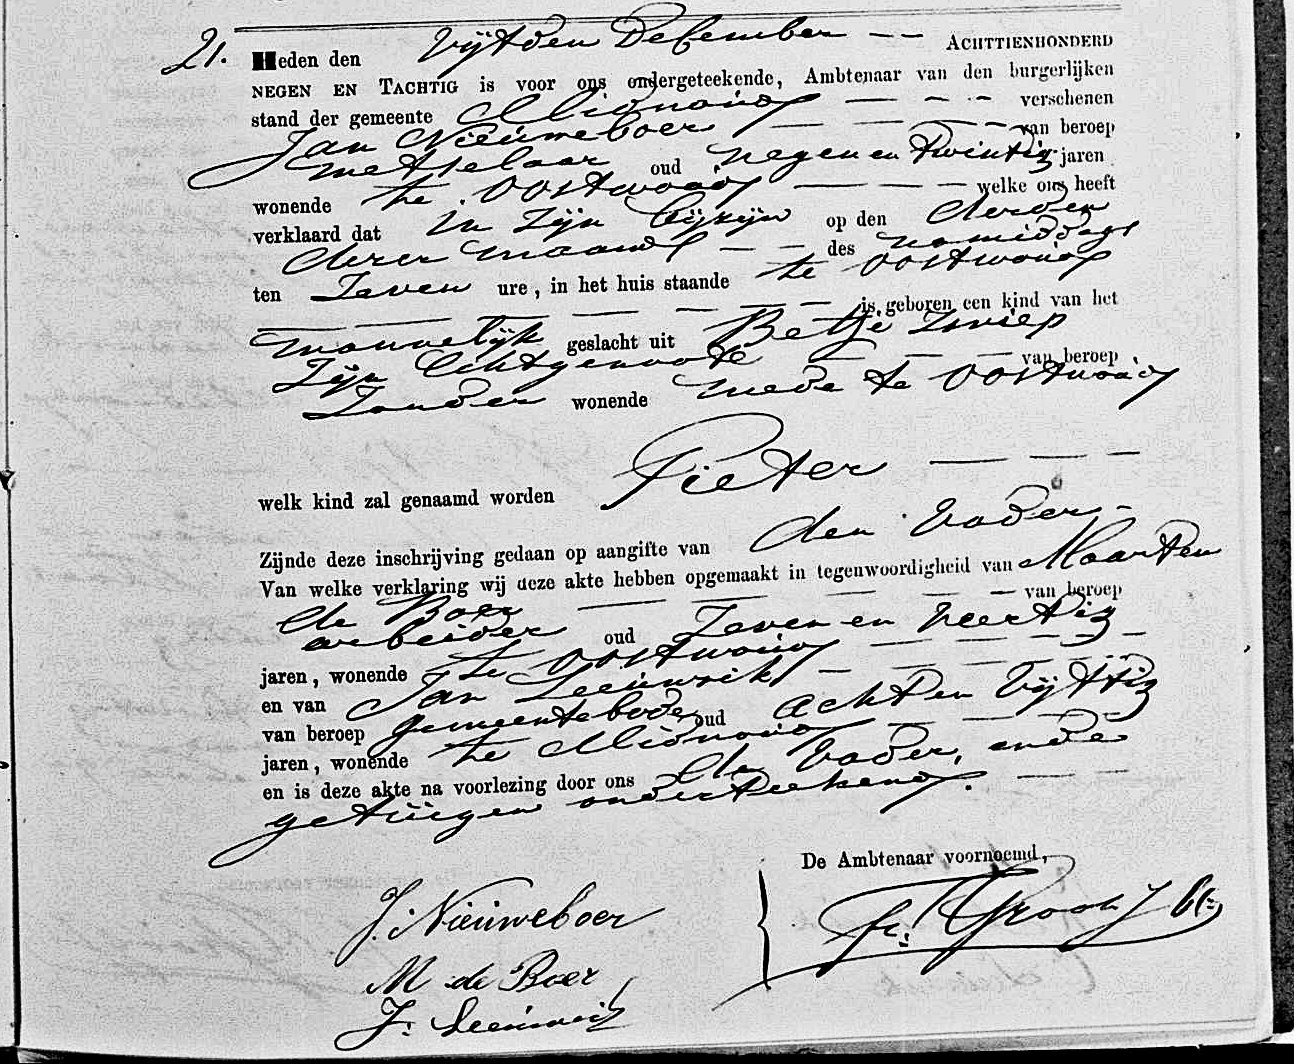 21. Heden den vijfden December -- ACHTTIENHONDERD
NEGEN EN TACHTIG is voor ons ondergeteekende, Ambtenaar van den burgerlijken
stand der gemeente Midwoud verschenen
Jan Nieuweboer van beroep
metselaar oud negen en twintig jaren
wonende te Oostwoud welke ons heeft
verklaard dat in zijn bijzijn op den derden
dezer maand des namiddags
ten zeven ure, in het huis staande te Oostwoud
is geboren een kind van het
mannelijk geslacht uit Betje Zwiep
zijn echtgenoote van beroep
zonder wonende mede te Oostwoud
welk kind zal genaamd worden Pieter
Zijnde deze inschrijving gedaan op aangifte van den vader
Van welke verklaring wij deze akte hebben opgemaakt in tegenwoordigheid van Maarten
de Boer van beroep
arbeider oud zeven en veertig
jaren, wonende te Oostwoud
en van Jan Leeuwrik
van beroep gemeentebode oud acht en vijftig
jaren, wonende te Midwoud
en is deze akte na voorlezing door ons de vader, en de
getuigen onderteekend.
De Ambtenaar voornoemd,
J. Nieuweboer
M de Boer
J. Leeuwrik